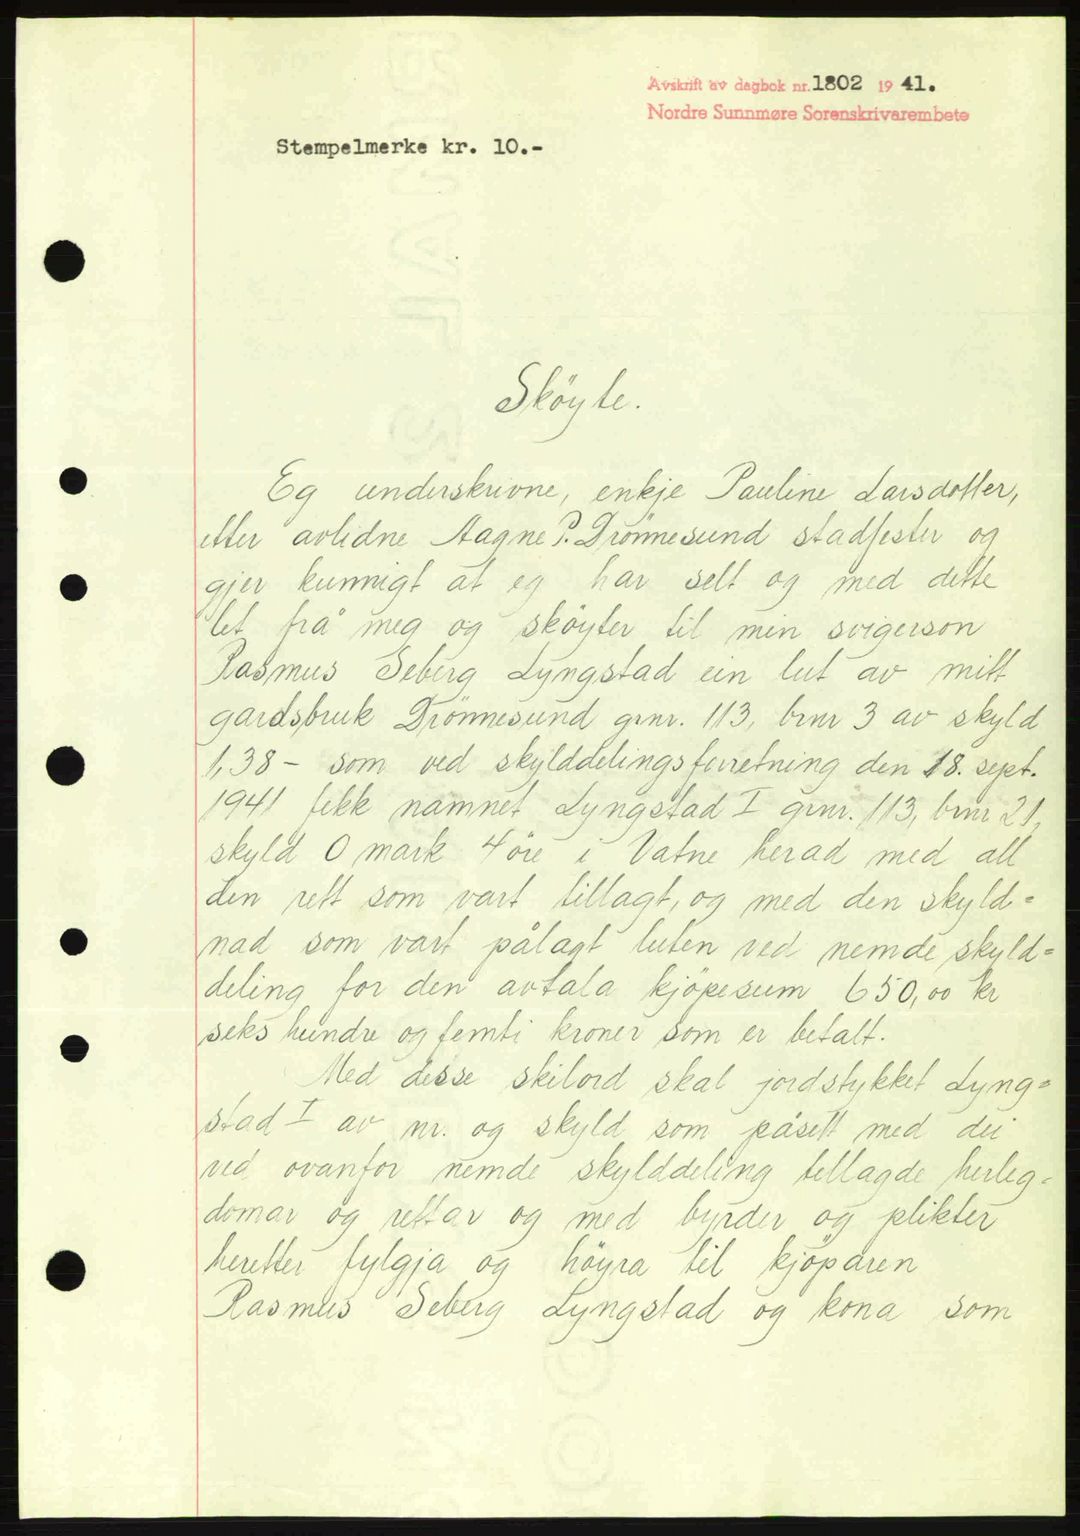 Avskrift av dagbok nr. 1802 19 41.
Nordre Sunnmøre Sorenskrivarembete
Stempelmerke kr. 10.-
Sköyte.
Eg underskrivne, enkje Pauline Larsdotter,
etter avlidne Aagne P. Drönnesund stadfester og
gjer kunnigt at eg har selt og med dette
let frå meg og sköyter til min svigerson
Rasmus Seberg Lyngstad ein lut av mitt
gardsbruk Drönnesund grnr. 113, brnr 3 av skyld
1,38 - som ved skylddelingsforretning den 18. sept.
1941 fekk namnet Lyngstad I grnr. 113, brnr 21,
skyld 0 mark 4 öre i Vatne herad med all
den rett som vart tillagt, og med den skyld=
nad som vart pålagt luten ved nemde skyld=
deling for den avtala kjöpesum 650,00 kr
seks hundre og femti kroner som er betalt.
Med desse skilord skal jordstykket Lyng=
stad I av nr. og skyld som påsett med dei
ved ovanfor nemde skylddeling tillagde herleg=
domar og rettar og med byrder og plikter
heretter fylgja og höyra til kjöparen
Rasmus Seberg Lyngstad og kona som